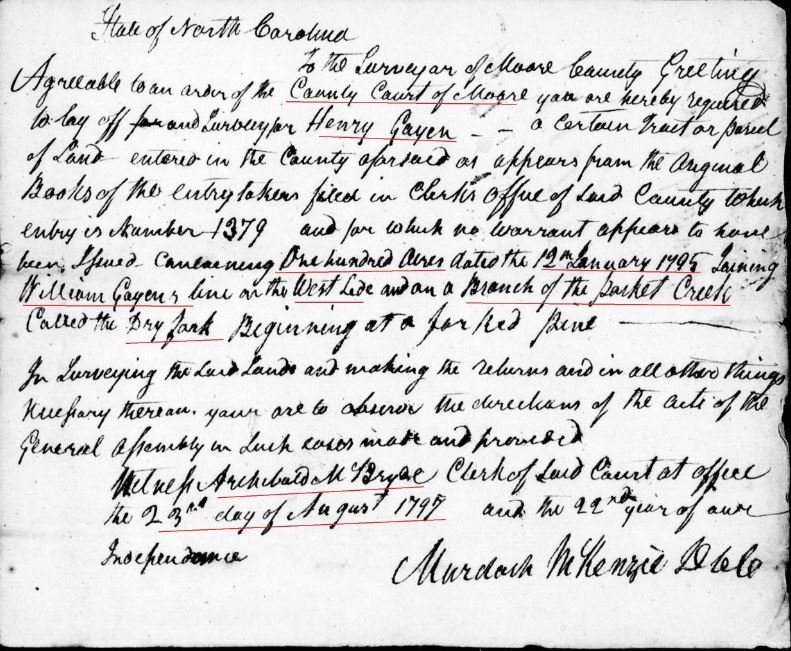 State of North Carolina
To the Surveyor of Moore County Greeting
Agreeable to an order of the County Court of Moore you are hereby required
to lay off for and Survey for Henry Gayen - - a Certain Tract or parcel
of Land entered in the County aforsaid as appears from the Original
Books of the entry takers filed in Clerks office of Said County Which
entry is Number 1379 and for which no warrant appears to have
been Issued Containing One hundred Acres dated the 12th January 1795 Joining
William Gayens line on the West Side and on a Branch of the Basket Creek
Called the Dry fork Beginning at a forked pine
In Surveying the Said Lands and making the returns and in all other things
Nessary thereon. your are to observe the directions of the acts of the
General Assembly in Such cases made and provided
Witness Archibald McBryde Clerk of Said Court at office
the 23rd day of August 1797 and the 22nd year of our
Independence
Murdoch McKenzie D C C